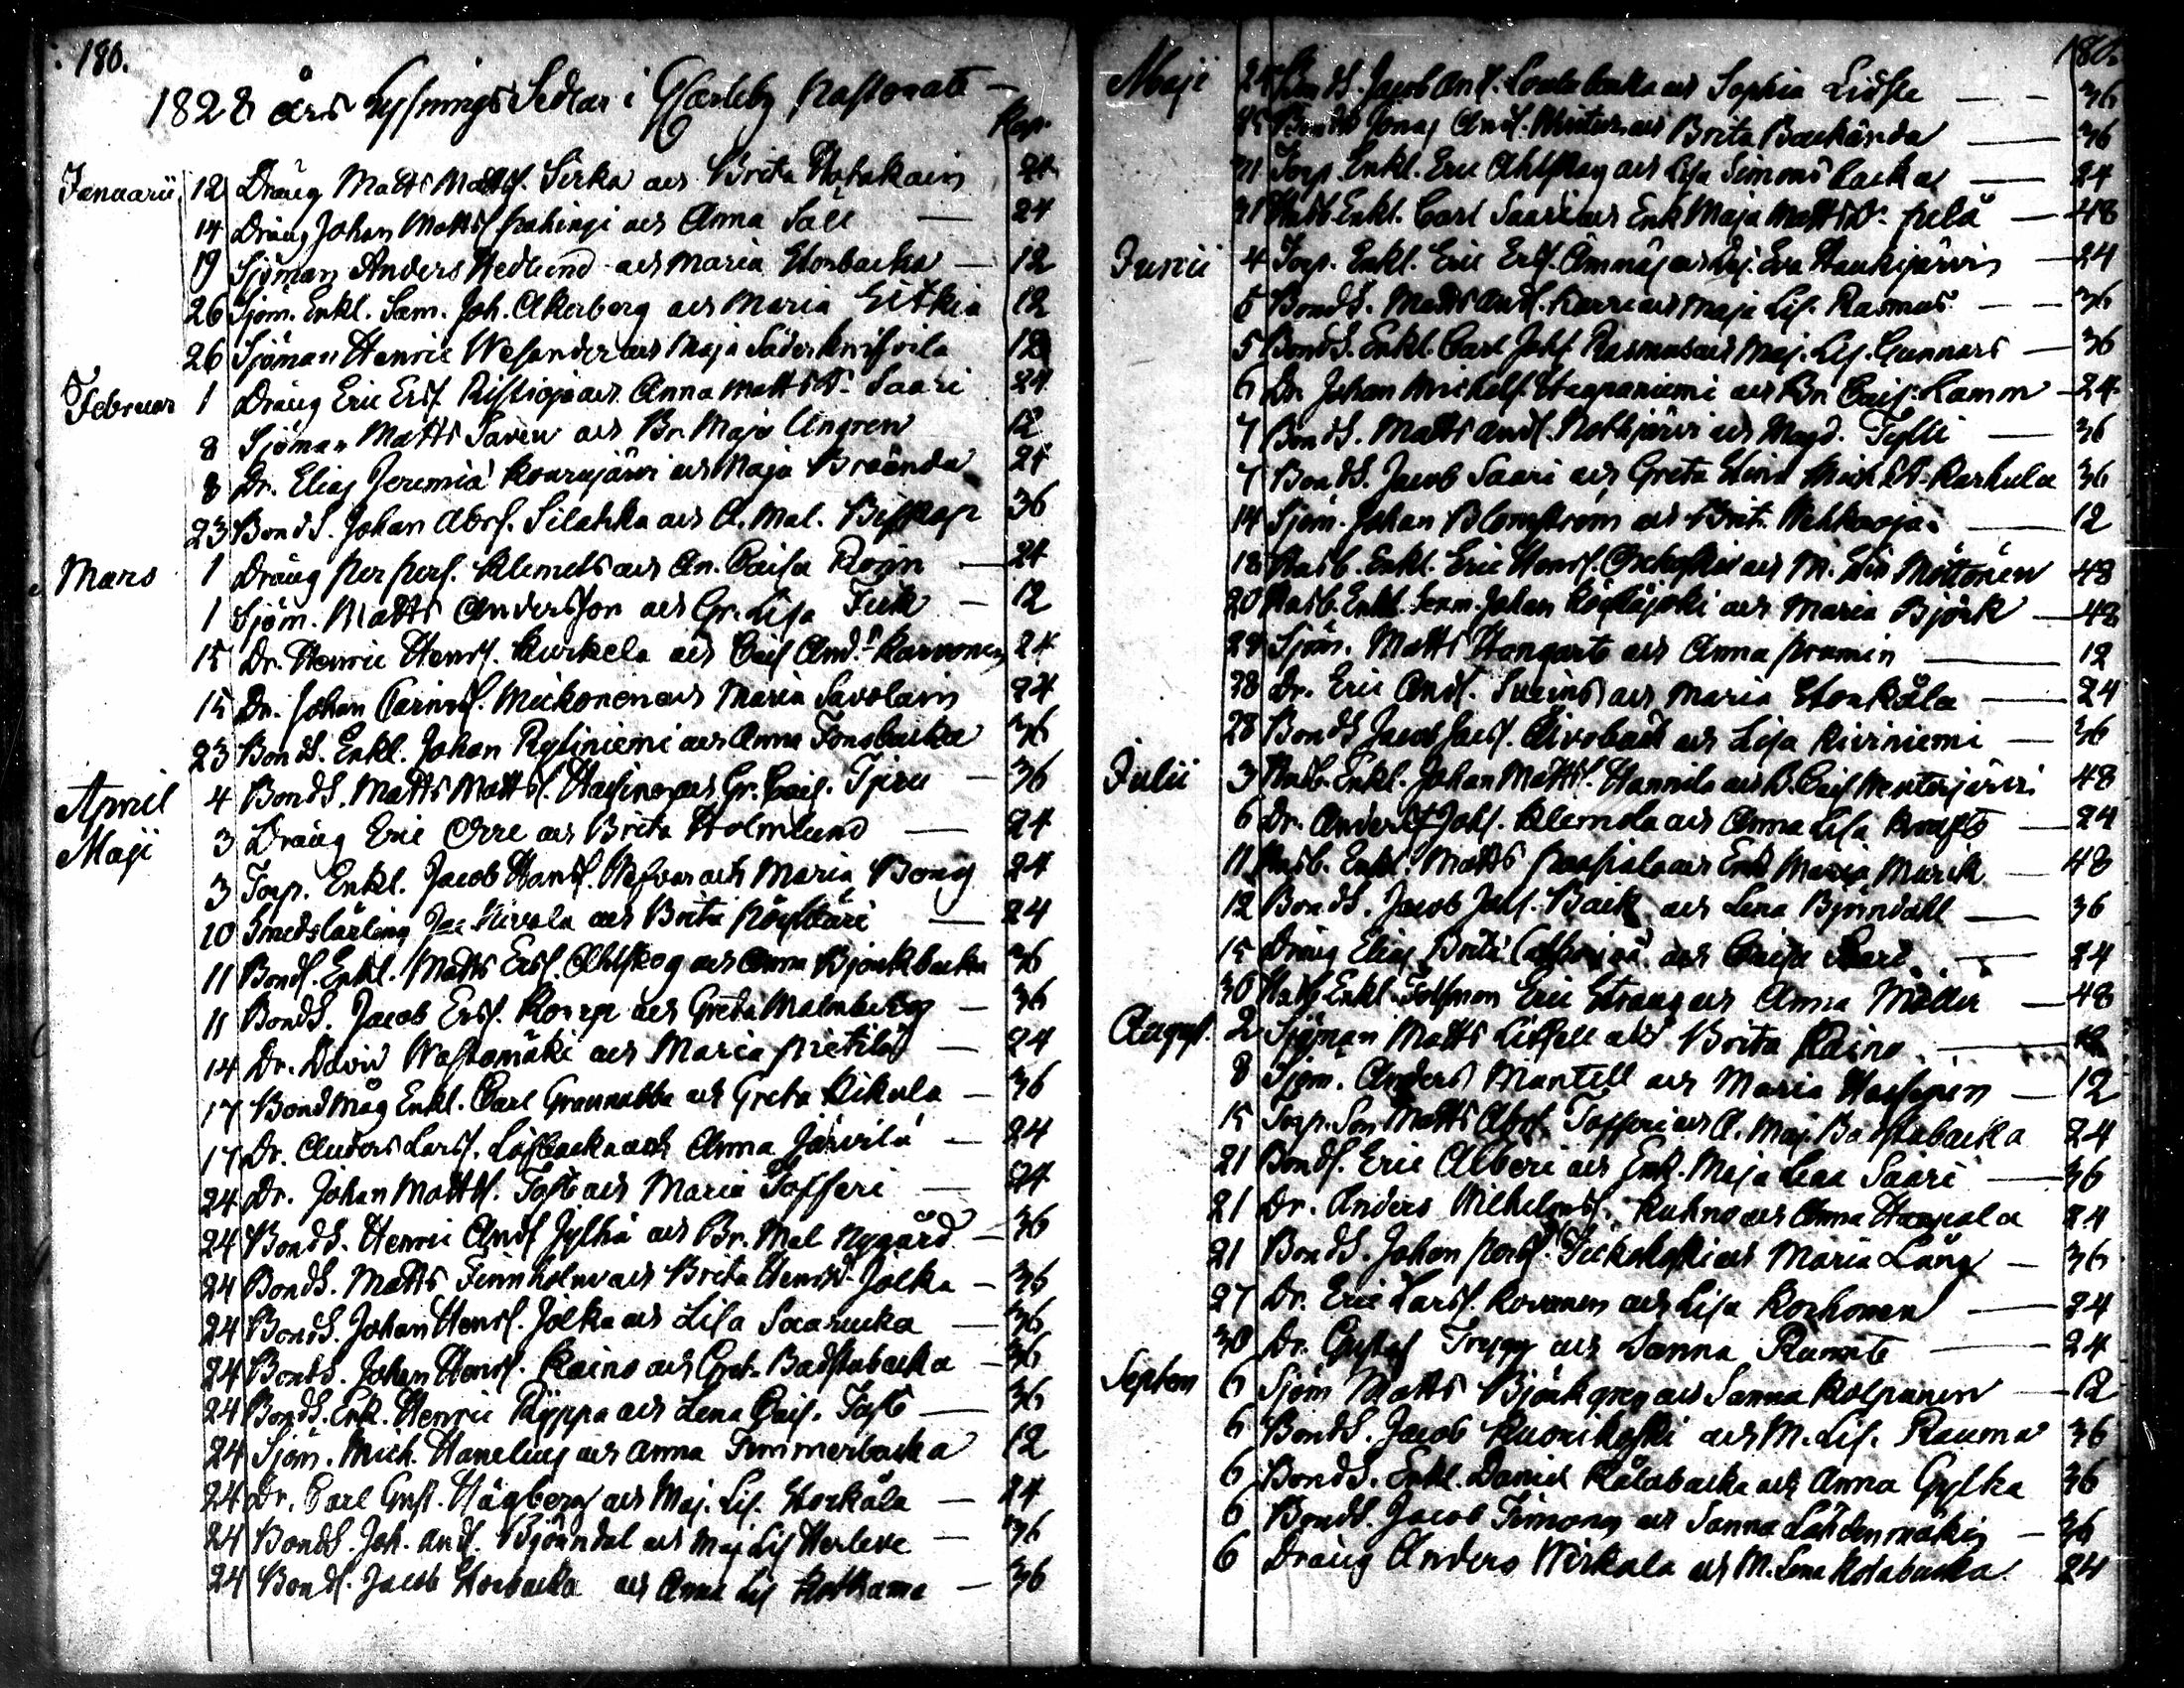 180.
1828 års Lysnings Sedlar i GCarleby Pastorate —
Kop.
Januarii 12 Dräng Matts Mattss. Sirka och Brita Hatakain 24
14 Dräng Johan Mattss. Pahingi och Anna Säll — 24
19 Sjöman Anders Hedlund och Maria Storbacka — 12
26 Sjöm. Enkl. Sam. Joh. Åkerberg och Maria Eitkia 12
26 Sjöman Henric Wesander och Maja Söder 12
Februar 1 Dräng Eric Erss. Ristioja och Anna Matts dr. Saari 24
8 Sjöman Matts Saven och Br. Maja Ångren 12
8 Dr. Elias Jeremiä Kourujärvi och Maja Braända 24
23 BondS. Johan Abrs. Silahka och A. Mal. Biskop 36
Mars 1 Dräng Per Pers. Klemets och An. Caisa Rosin — 24
1 Sjöm. Matts Andersson och Gr. Lisa Fick — 12
15 Dr. Henric Henrs. Kurkela och Cais And. dr Karvonen 24
15 Dr. Johan Mickonen och Maria Savolain 24
23 BondS. Enkl. Johan Rysiniemi och Anna Tonsbacka 36
April 4 BondS. Matts Mattss. Hassinen och Gr. Cais. Tjiru — 36
Maji 3 Dräng Eric Orre och Brita Holmlund — 24
3 Torp. Enkl. Jacob Hanss. Wesvar och Maria Bong 24
10 Smedslärling Jac Hivala och Brita Pöyskäri — 24
11 Bonds. Enkl. Matts Erss. Ahlskog och Anna Björkbacka 36
11 BondS. Jacob Erss. Korpe och Greta Malmberg — 36
14 Dr. David Wastamäki och Maria Pietilä — 24
17 Bondmåg Enkl. Carl Grannabba och Greta Kikula — 36
17 Dr. Anders Larss. Löfbacka och Anna Järvilä — 24
24 Dr. Johan Mattss. Tast och Maria Tofferi — 24
24 BondS. Henric Ands. Jylhä och Br. Mal Nygård — 36
24 BondS. Matts Finnholm och Brita Henrsd. Jolka — 36
24 BondS. Johan Henrs. Jolka och Lisa Saarukka — 36
24 BondS. Johan Henrs. Kaino och Gret. Badstubacka — 36
24 BondS. Enk. Henric Ryyppä och Lena Cais. Tast — 36
24 Sjöm. Mich. Hanelius och Anna Timmerbacka 12
24 Dr. Carl Gust. Hägberg och Maj. Lis. Storkåla — 24
24 BondS. Joh. Ands. Björndal och Maj Lis Herlevi — 36
24 BondS. Jacob Storbacka och Anna Lis Kotkama — 36
180.
Maji 24 BondS. Jacob Ands. och Sophia Lidsle — 36
25 BondS Jonas Ands. och Brita Backända — 36
31 Torp. Enkl. Eric Ahlskog och Lisa Simonsbacka — 24
31 Husb. Enkl. Carl Saari och Enk Maja Matts dr. Pelå — 48
Junii 4 Torp. Enkl. Eric Erss. Åmnäs och Enk. Eva Haukijärvi — 24
5 BondS. Matts Ands. Karri och Maja Lis. Rasmus — 36
5 BondS. Enkl. Carl Johs. Rasmus och Maj. Lis. Gunnars — 36
6 Dr. Johan Michels. Haapaniemi och Br. Cais. Lamm — 24
7 BondS. Matts Ands. Kotkjärvi och Magd. Tylli — 36
7 BondS. Jacob Saari och Greta Stina Mich dr. Karhula 36
14 Sjöm. Johan Blomström och Brita Wehkaoja — 12
18 Husb. Enkl. Eric Henrs. och M. Lis Möttönen 48
20 Husb. Enkl. Johan och Maria Björk — 48
24 Sjöm. Matts Hongarts och Anna Pramin — 12
28 Dr. Eric Ands. Sveins och Maria Storkåla — 24
28 BondS Jacob Jacs. och Lisa Kiviniemi — 36
Julii 3 Husb. Enkl. Johan Mattss. Hannila och B. Cais 48
6 Dr. Anders Johs. Klemola och Anna Lisa Krafts — 24
11 Husb. Enkl. Matts och Enk Maria Murik — 48
12 BondS. Jacob Jacs. Baik och Lena Björndahl — 36
15 Dräng Elias Brita och Caisa Saari — 24
30 Husb. Enkl. Tolfman Eric Strang och Anna Möller — 48
August. 2 Sjöman Matts Litsell och Brita Kaino — 12
8 Sjöm. Anders Mantell och Maria Hassinen — 12
15 Torp. Son Matts Abrs. Tofferi och A. Maj. Badstubacka 24
21 Bonds. Eric Alberi och Enk. Maja Lena Saari — 36
21 Dr. Anders Wilhelmss. Kuhno och Anna Haapala 24
21 BondS. Johan Perss. och Maria Lång — 36
27 Dr. Eric Larss. Kovanen och Lisa Korhonen — 24
30 Dr. Gustaf Trygg och Sanna Rumte — 24
Septem 6 Sjöm Matts Björkgren och Sanna Kolpanen — 12
6 BondS. Jacob Kuorikoski och M. Lis. Rauma 36
6 BondS. Enkl. Daniel Kålabacka och Anna Gylka 36
6 BondS. Jacob Timong och Sanna Lähdenmäkis — 36
6 Dräng Anders Wirkala och M. Lena Kolabacka 24